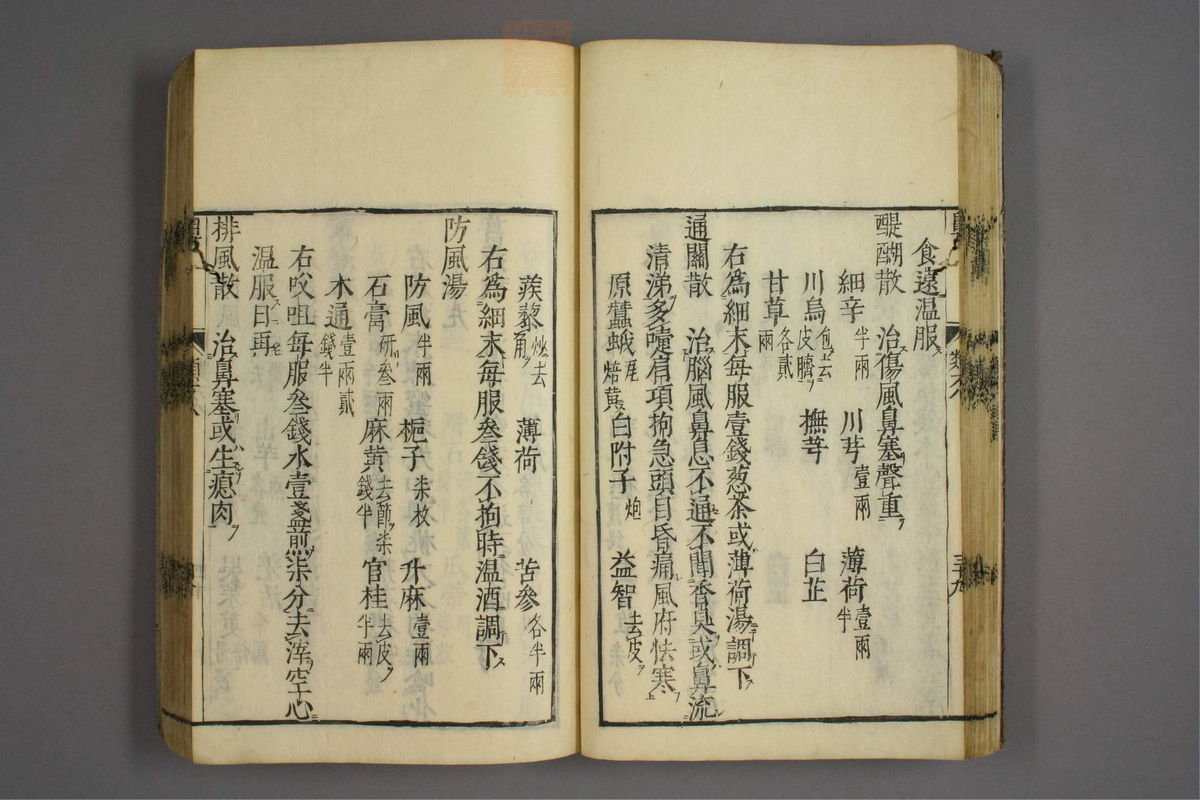 食遠温服
醍醐散 治傷風鼻塞聲重
細辛半兩 川芎壹兩 薄荷壹兩半
川烏炮去皮臍 撫芎 白芷
甘草各貳兩
右為細末每服壹錢葱茶或薄荷湯調下
通關散 治腦風鼻息不通不聞香臭或鼻流
清涕多嚏肩項拘急頭目昏痛風府怯寒
原蠶蛾 焙黃 白附子炮 益智去皮
蒺藜炒去角 薄荷 苦參各半兩
右為細末每服叄錢不拘時温酒調下
防風湯
防風半兩 梔子柒枚 升麻壹兩
石膏研叄兩 麻黃去節柒錢半 官桂去皮半兩
木通壹兩貳錢半
右㕮咀每服叄錢水壹盞煎柒分去滓空心
温服日再
排風散 治鼻塞或生瘜肉
類六
三十九
類六